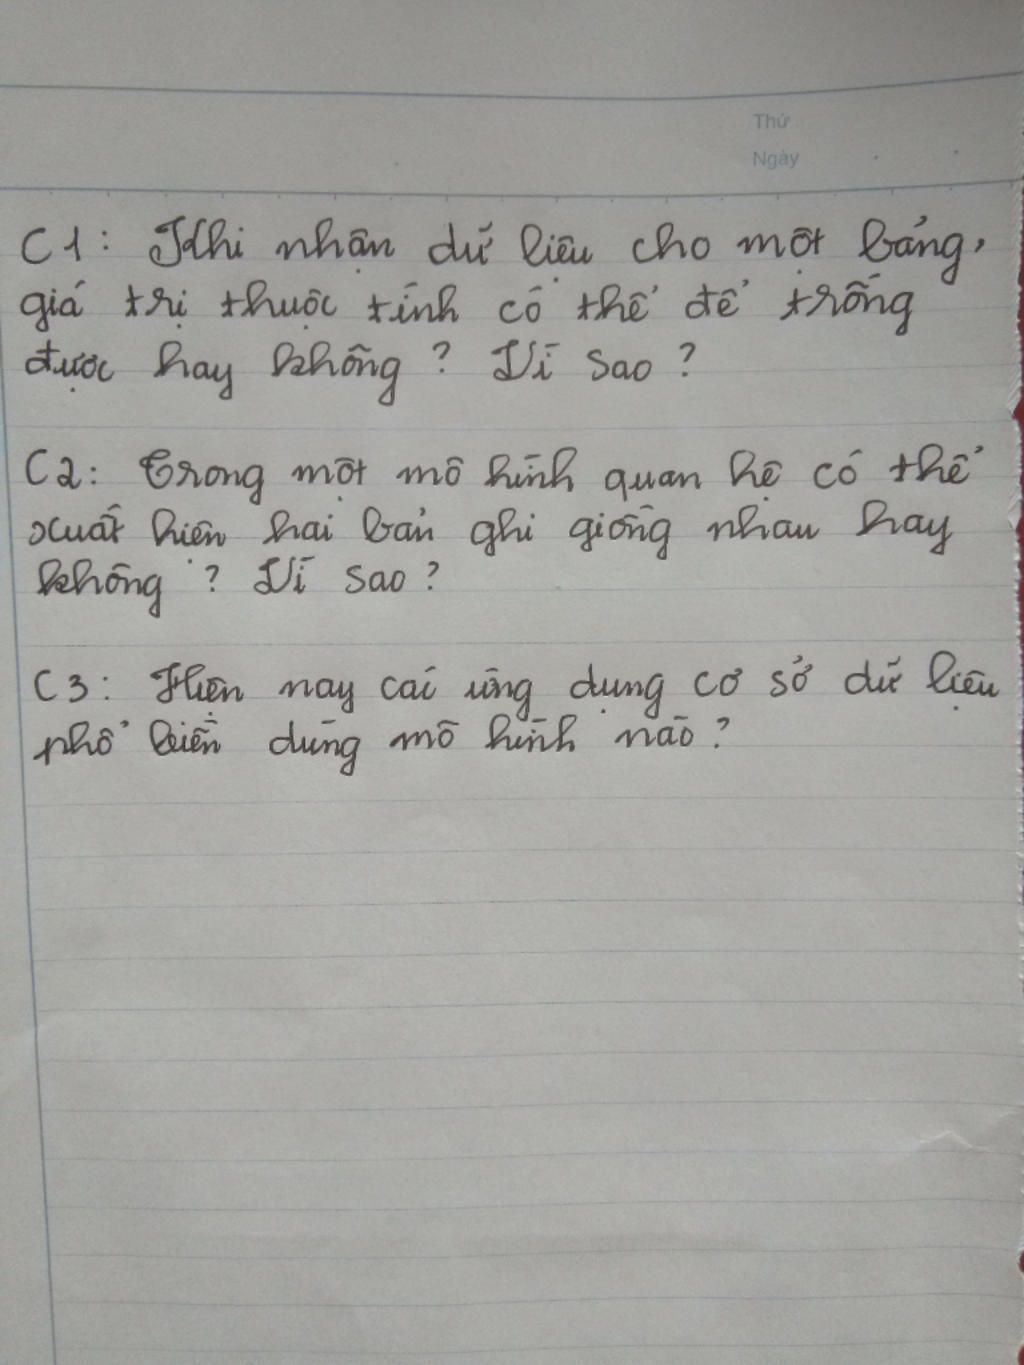 Thứ
Ngày
C1: Khi nhận dữ liệu cho một bảng,
giá trị thuộc tính có thể để trống
được hay không? Vì sao?
C2: Trong một mô hình quan hệ có thể
xuất hiện hai bản ghi giống nhau hay
không? Vì sao?
C3: Hiện nay các ứng dụng cơ sở dữ liệu
phổ biến dùng mô hình nào?